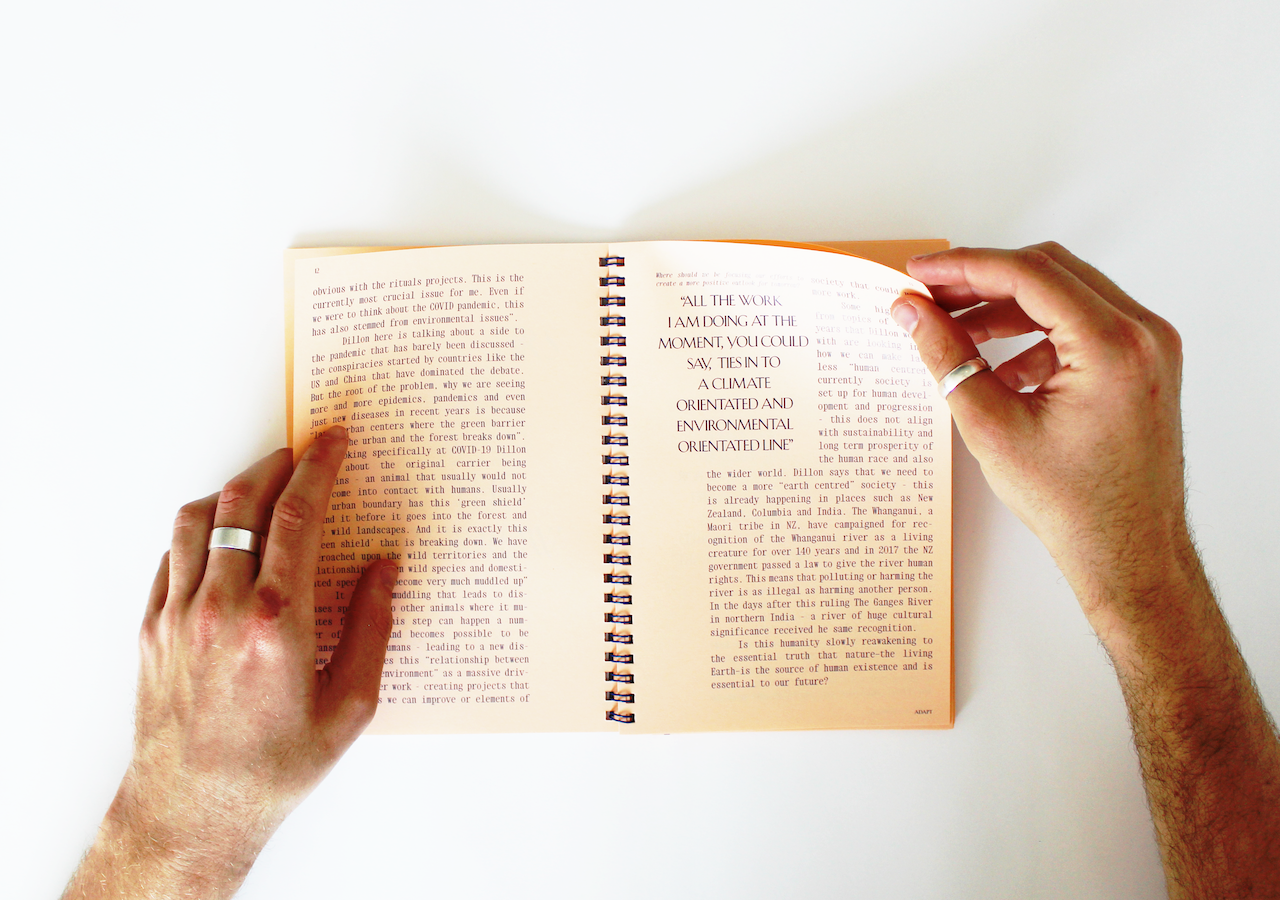 12
obvious with the rituals projects. This is the
currently most crucial issue for me. Even if
we were to think about the COVID pandemic, this
has also stemmed from environmental issues”.
Dillon here is talking about a side to
the pandemic that has barely been discussed -
the conspiracies started by countries like the
US and China that have dominated the debate.
But the root of the problem, why we are seeing
more and more epidemics, pandemics and even
just new diseases in recent years is because
urban centers where the green barrier
the urban and the forest breaks down”.
looking specifically at COVID-19 Dillon
about the original carrier being
- an animal that usually would not
come into contact with humans. Usually
urban boundary has this ‘green shield’
and it before it goes into the forest and
wild landscapes. And it is exactly this
shield’ that is breaking down. We have
upon the wild territories and the
wild species and domesti-
become very much muddled up”
It muddling that leads to dis-
to other animals where it mu-
this step can happen a num-
and becomes possible to be
- leading to a new dis-
this “relationship between
environment” as a massive driv-
work - creating projects that
we can improve or elements of
Where should we be
create a more positive
“ALL THE WORK
I AM DOING AT THE
MOMENT, YOU COULD
SAY, TIES IN TO
A CLIMATE
ORIENTATED AND
ENVIRONMENTAL
ORIENTATED LINE”
society that could
more work.
Some
from of
years that Dillon
with are looking
how we can make
less “human centred
currently society is
set up for human devel-
opment and progression
- this does not align
with sustainability and
long term prosperity of
the human race and also
the wider world. Dillon says that we need to
become a more “earth centred” society - this
is already happening in places such as New
Zealand, Columbia and India. The Whanganui, a
Maori tribe in NZ, have campaigned for rec-
ognition of the Whanganui river as a living
creature for over 140 years and in 2017 the NZ
government passed a law to give the river human
rights. This means that polluting or harming the
river is as illegal as harming another person.
In the days after this ruling The Ganges River
in northern India - a river of huge cultural
significance received he same recognition.
Is this humanity slowly reawakening to
the essential truth that nature-the living
Earth-is the source of human existence and is
essential to our future?
ADAPT